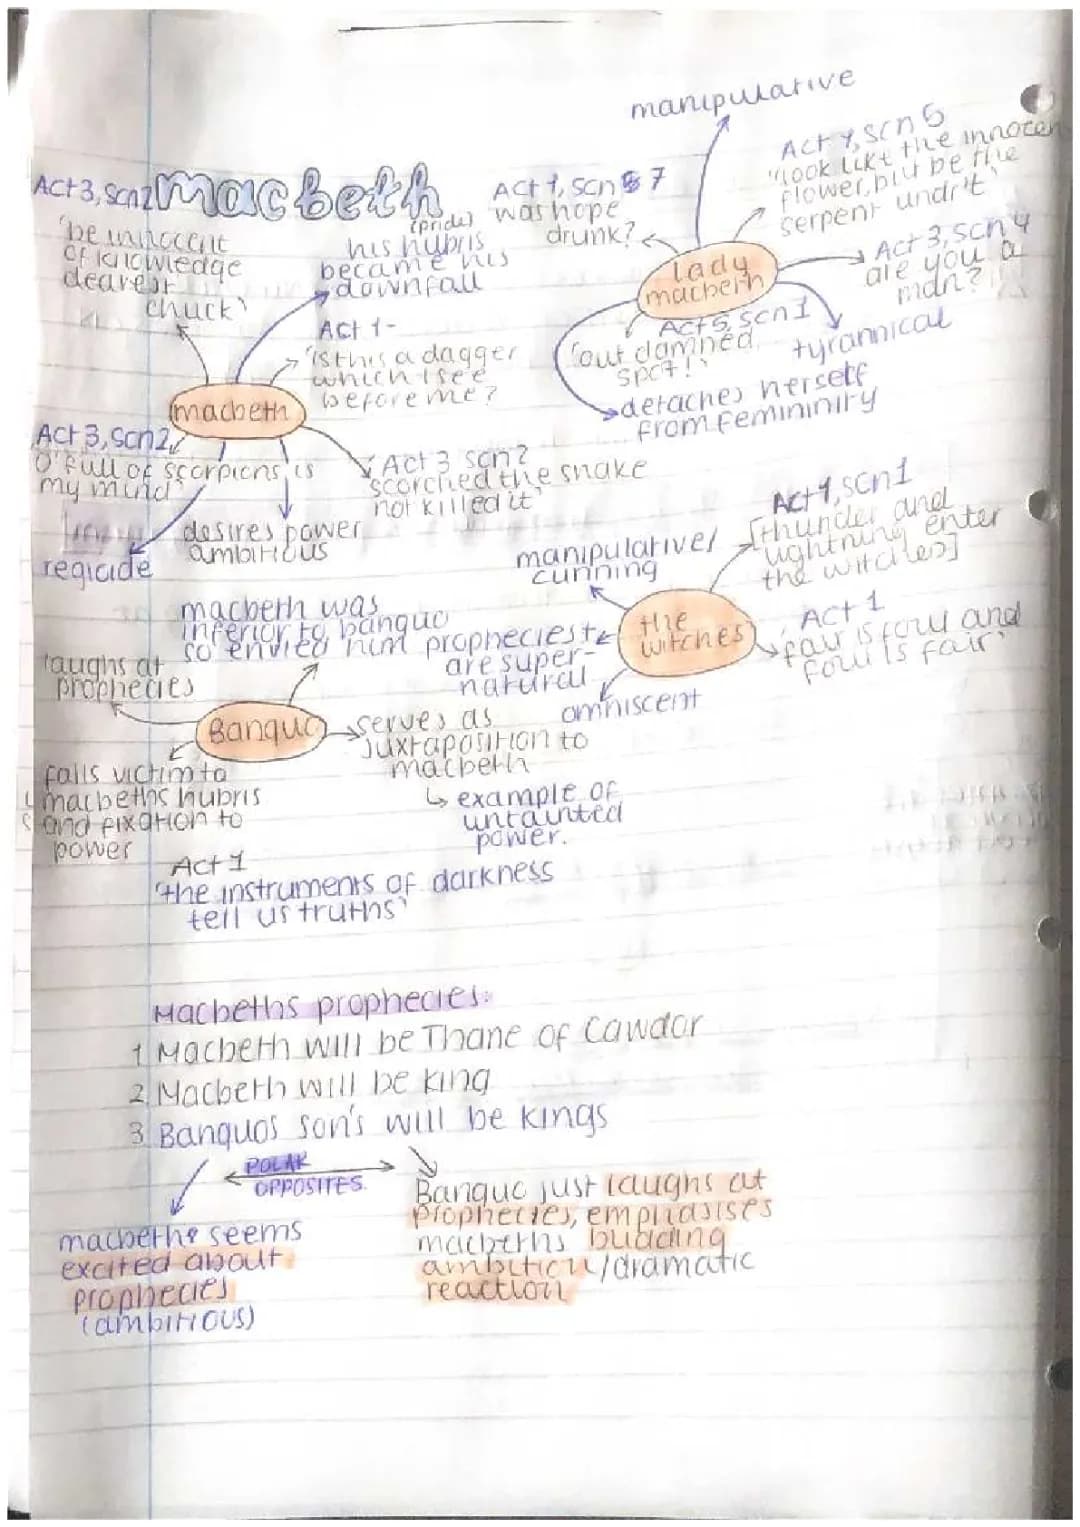 macbeth
Act 3, scn2
'be innocent
of knowledge
dearest
chuck'
(pride)
his hubris
became his
downfall
Act 1-
'is this a dagger
which i see
before me?
macbeth
Act 3, scn2
O' full of scorpions is
my mind'
regicide
desires power
ambitious
Act 3 scn2
scorched the snake
not killed it'
manipulative
Act 1, scn 7
was hope
drunk?
Act 1, scn 5
"look like the innocen
flower, but be the
serpent undr't'
lady
macbeth
Act 3, scn 4
are you a
man?
tyrannical
Act 5, scn 1
'out damned
spot!'
detaches herself
from femininity
manipulative/
cunning
Act 1, scn1
[thunder and
lightning enter
the witches]
the
witches
Act 1
'fair is foul and
foul is fair'
prophecies
are super-
natural
omniscent
macbeth was
inferior to banquo
so envied him
laughs at
prophecies
Banquo
serves as
juxtaposition to
macbeth
↳ example of
untainted
power.
falls victim to
macbeths hubris
and fixation to
power
Act 1
'the instruments of darkness
tell us truths'
Macbeths prophecies:
1 Macbeth will be Thane of Cawdor
2 Macbeth will be king
3 Banquos son's will be kings
POLAR
OPPOSITES.
macbeth seems
excited about
prophecies
(ambitious)
Banquo just laughs at
prophecies, emphasises
macbeths budding
ambition/dramatic
reaction